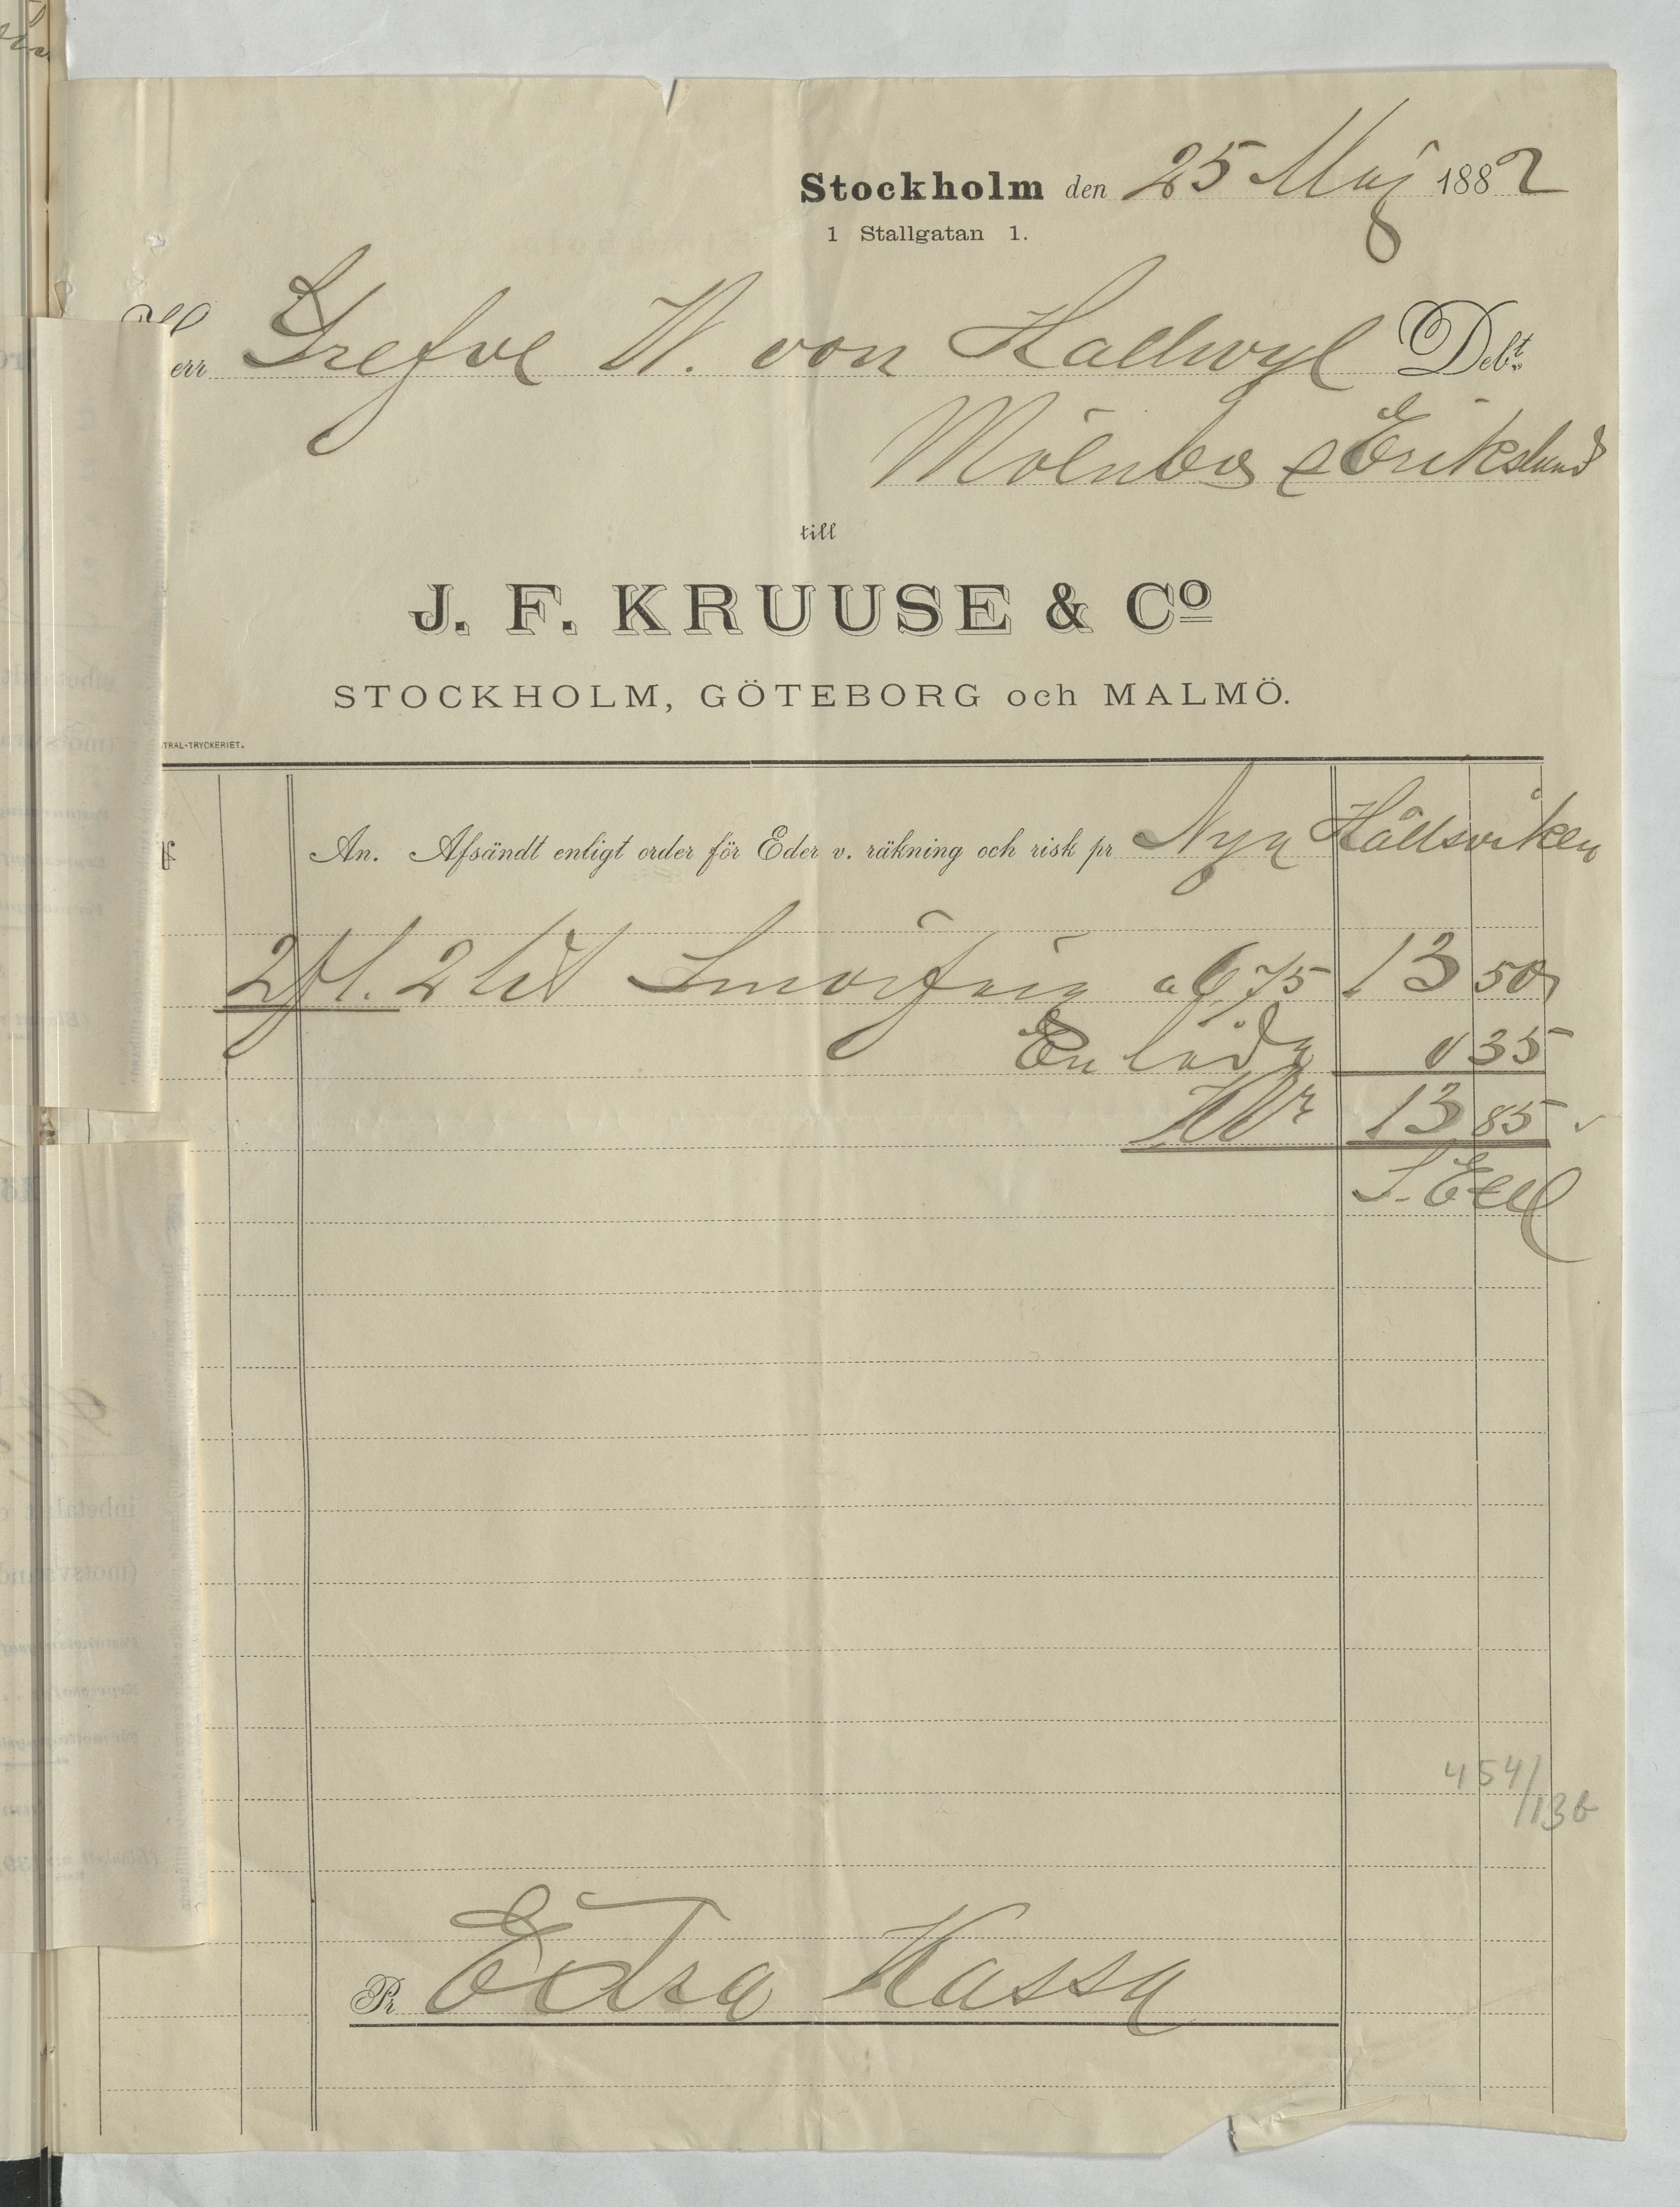 Stockholm den 25 Maj 1882
1 Stallgatan 1.
Herr Grefve W. von Hallwyl Debt.
Mölnbo & Erikslund
till
J. F. KRUUSE & Co
STOCKHOLM, GÖTEBORG och MALMÖ.
TRAL-TRYCKERIET.
An. Afsändt enligt order för Eder v. räkning och risk pr Nya Hållsviken
2 fl. 2 lit Smörfärg a 6,75 13 50
En låda " 35
KDr 13 85
S. E.
454/136
Pr Edra Kassa